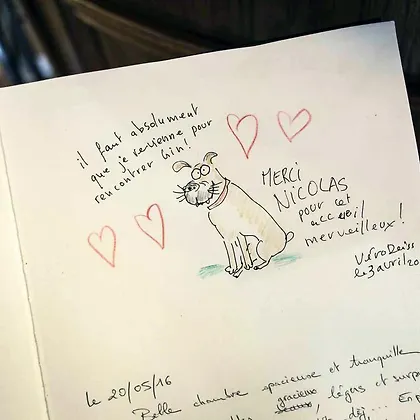 il faut absolument
que je revienne pour
rencontrer Gin!
MERCI
NICOLAS
pour cet
accueil
merveilleux!
le 3 avril 20
le 20/05/16
Belle chambre spacieuse et tranquille
gracieux légers et surp